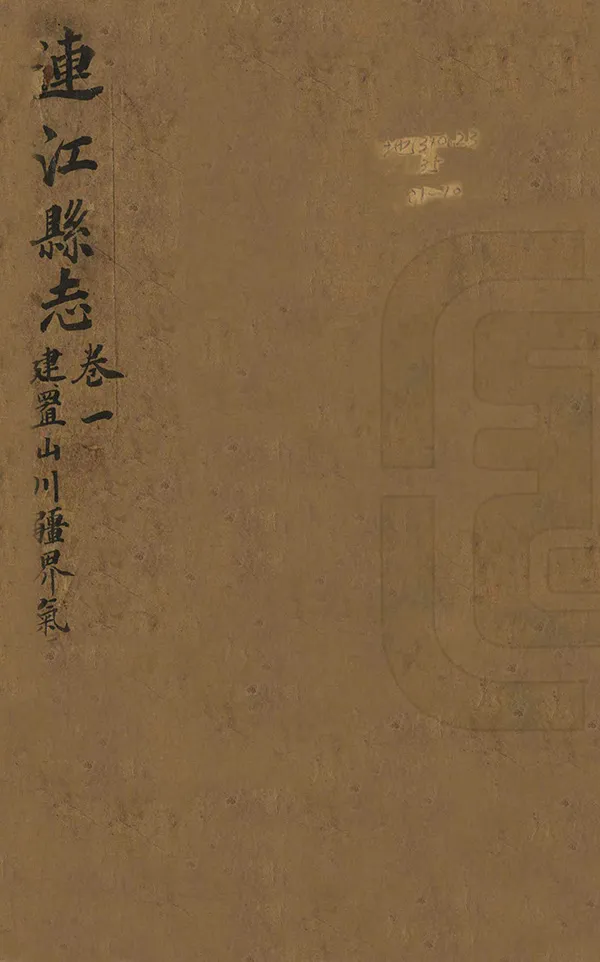 連江縣志
卷一
建置山川疆界氣